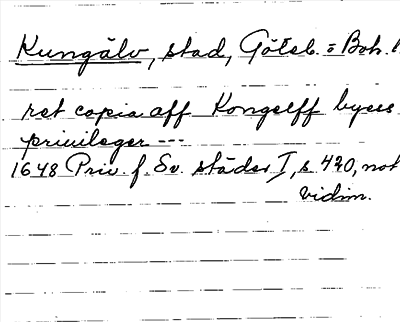 Kungälv, stad, Göteb. o Boh. l
ret copia aff Kongelff byess
privileger ---
1648 Priv. f. Sv. städer I, s. 420, not
vidim.